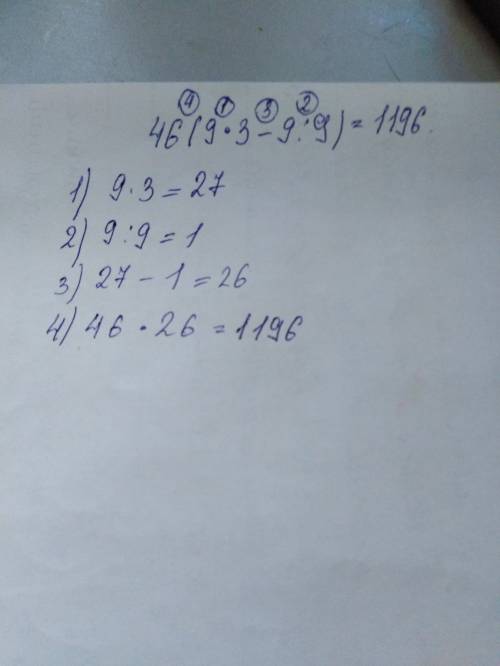 ④ ① ③ ②
46(9·3-9:9)=1196.
1) 9·3=27
2) 9:9=1
3) 27-1=26
4) 46·26=1196